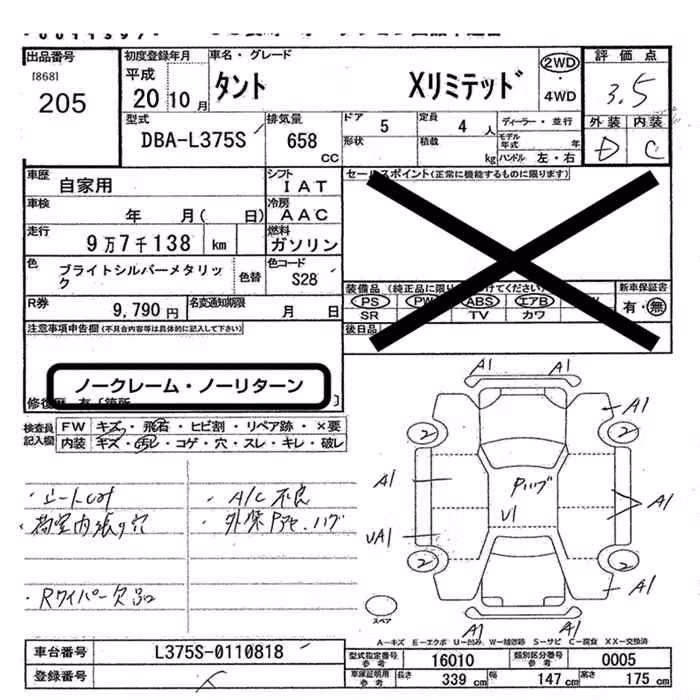 出品番号
[868]
205
初度登録年月
平成
20 10 月
車名・グレード
タント Xリミテッド
2WD
・
4WD
評価点
3.5
外装 内装
D C
型式
DBA-L375S
排気量
658 CC
ドア 5
形状
定員 4 人
積載 kg
ディーラー・並行
モデル年式 年
ハンドル 左・右
車歴
自家用
シフト
IAT
車検
年 月( 日)
冷房
AAC
走行
9万7千138 km
燃料
ガソリン
色
ブライトシルバーメタリック
色替
色コード
S28
R券
9,790 円
名変通知期限
月 日
セールスポイント(正常に機能するものに限ります)
装備品
PS PW ABS エアB
SR TV カワ
後日品
新車保証書
有・無
注意事項申告欄(不具合内容等は具体的に記入して下さい)
ノークレーム・ノーリターン
修復歴 有
検査員
記入欄
FW キズ・飛石・ヒビ割・リペア跡・×要
内装 キズ・汚レ・コゲ・穴・スレ・キレ・破レ
・A/C不良
・荷室内張り穴
・Rワイパー欠品
A1 A1
A1
2 2
A1 A1
Pハゲ
U1
UA1
2 2
A1
A1 A1
スペア
A-キズ E-エクボ U-凹み W-補修跡 S-サビ C-腐食 XX-交換済
車台番号
L375S-0110818
登録番号
型式指定番号
参考
16010
類別区分番号
参考
0005
車庫証明用
参考
長さ 339 cm
幅 147 cm
高さ 175 cm